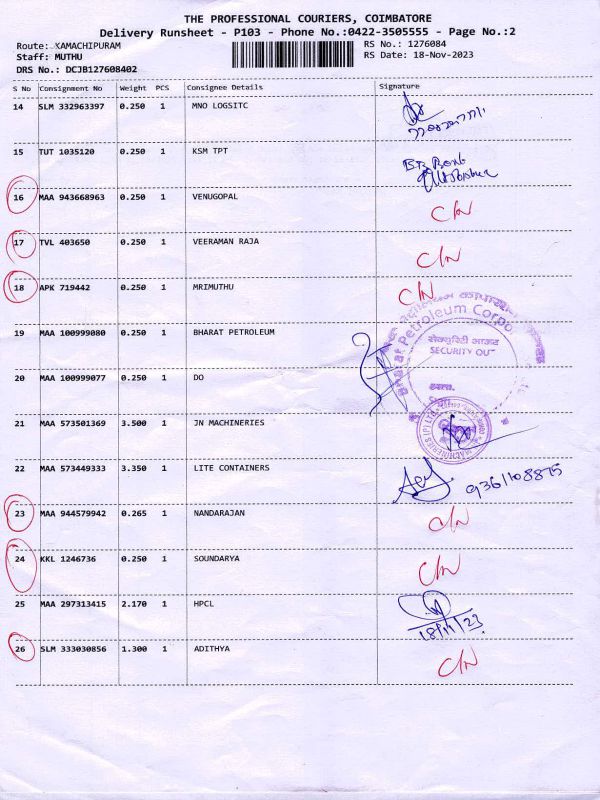 THE PROFESSIONAL COURIERS, COIMBATORE
Delivery Runsheet - P103 - Phone No.:0422-3505555 - Page No.:2
Route: KAMACHIPURAM RS No.: 1276084
Staff: MUTHU RS Date: 18-Nov-2023
DRS No.: DCJB127608402
S No Consignment No Weight PCS Consignee Details Signature
14 SLM 332963397 0.250 1 MNO LOGSITC
15 TUT 1035120 0.250 1 KSM TPT
16 MAA 943668963 0.250 1 VENUGOPAL C/N
17 TVL 403650 0.250 1 VEERAMAN RAJA C/N
18 APK 719442 0.250 1 MRIMUTHU C/N
Bharat Petroleum Corpo
सेक्युरिटी आऊट
SECURITY OUT
19 MAA 100999080 0.250 1 BHARAT PETROLEUM
20 MAA 100999077 0.250 1 DO
21 MAA 573501369 3.500 1 JN MACHINERIES
MACHINERIES (P) LTD
22 MAA 573449333 3.350 1 LITE CONTAINERS 9361108875
23 MAA 944579942 0.265 1 NANDARAJAN C/N
24 KKL 1246736 0.250 1 SOUNDARYA C/N
25 MAA 297313415 2.170 1 HPCL 18/11/23
26 SLM 333030856 1.300 1 ADITHYA C/N